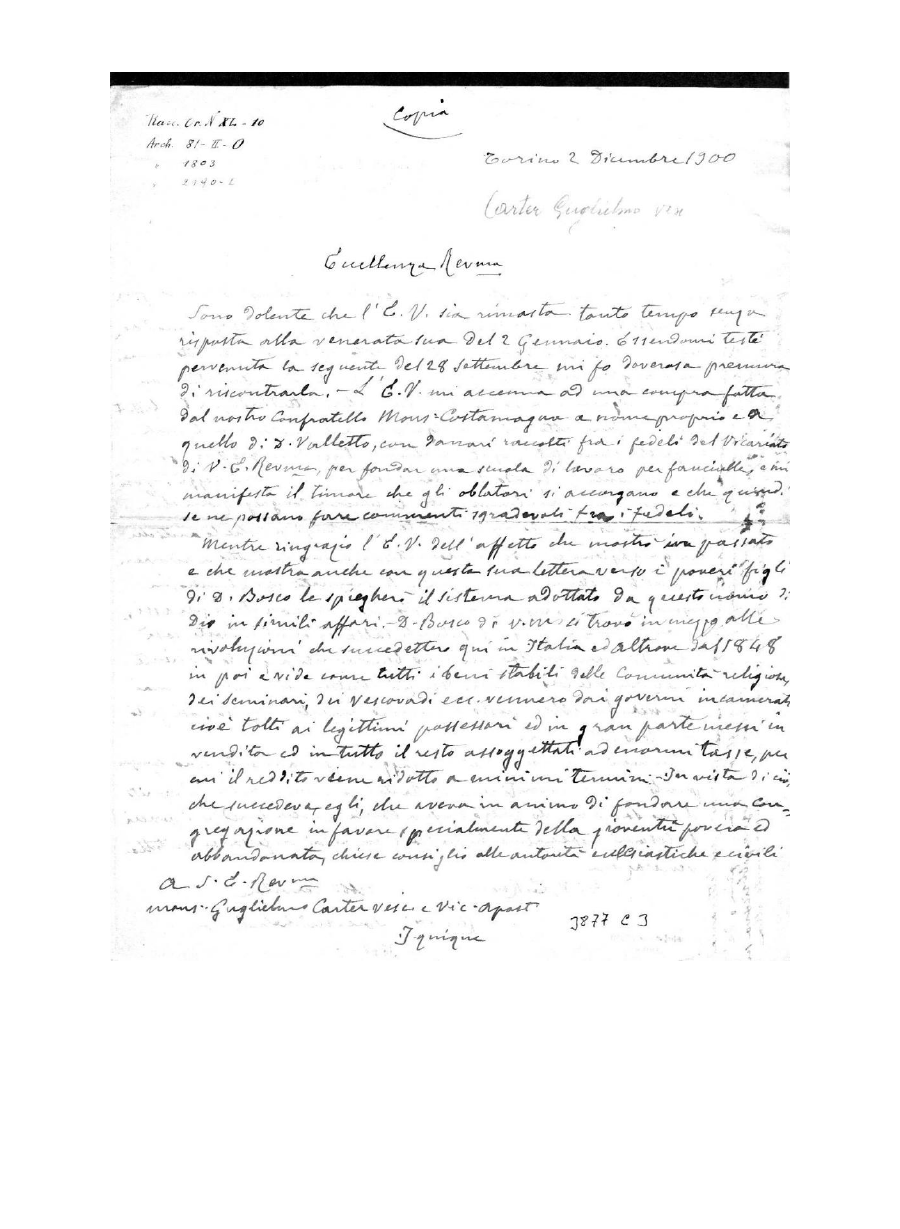 Copia
Racc. Or. N XL - 10
Arch. 81-II-O
" 1803
" 2140-2
Torino 2 Dicembre 1900
Carter Guglielmo
Eccellenza Revma
Sono dolente che l'E. V. sia rimasta tanto tempo senza
risposta alla venerata sua del 2 Gennaio. Essendomi testè
pervenuta la seguente del 28 Settembre mi fo doverosa premura
di riscontrarla. - L'E. V. mi accenna ad una compra fatta
dal nostro Confratello Mons. Costamagna a nome proprio e a
quello di D. Valletto, con danari raccolti fra i fedeli del Vicariato
di V. E. Revma, per fondar una scuola di lavoro per fanciulle, e mi
manifesta il timore che gli oblatori si accorgano e che quindi
se ne possano fare commenti sgradevoli fra i fedeli.
Mentre ringrazio l'E. V. dell'affetto che mostrò in passato
e che mostra anche con questa sua lettera verso i poveri figli
di D. Bosco le spiegherò il sistema adottato da questo uomo di
Dio in simili affari. - D. Bosco di v. m. si trovò in mezzo alle
rivoluzioni che succedettero qui in Italia ed altrove dal 1848
in poi e vide come tutti i beni stabili delle Comunità religiose,
dei seminari, dei vescovadi ecc. vennero dai governi incamerati
cioè tolti ai legittimi possessori ed in gran parte messi in
vendita ed in tutto il resto assoggettati ad enormi tasse, per
cui il reddito viene ridotto a minimi termini - In vista di ciò,
che succedeva, egli, che aveva in animo di fondare una Con-
gregazione in favore specialmente della gioventù povera ed
abbandonata, chiese consiglio alle autorità ecclesiastiche e civili
A S. E. Revma
Mons. Guglielmo Carter Vesc. e Vic. Apost
Iquique
3877 C 3